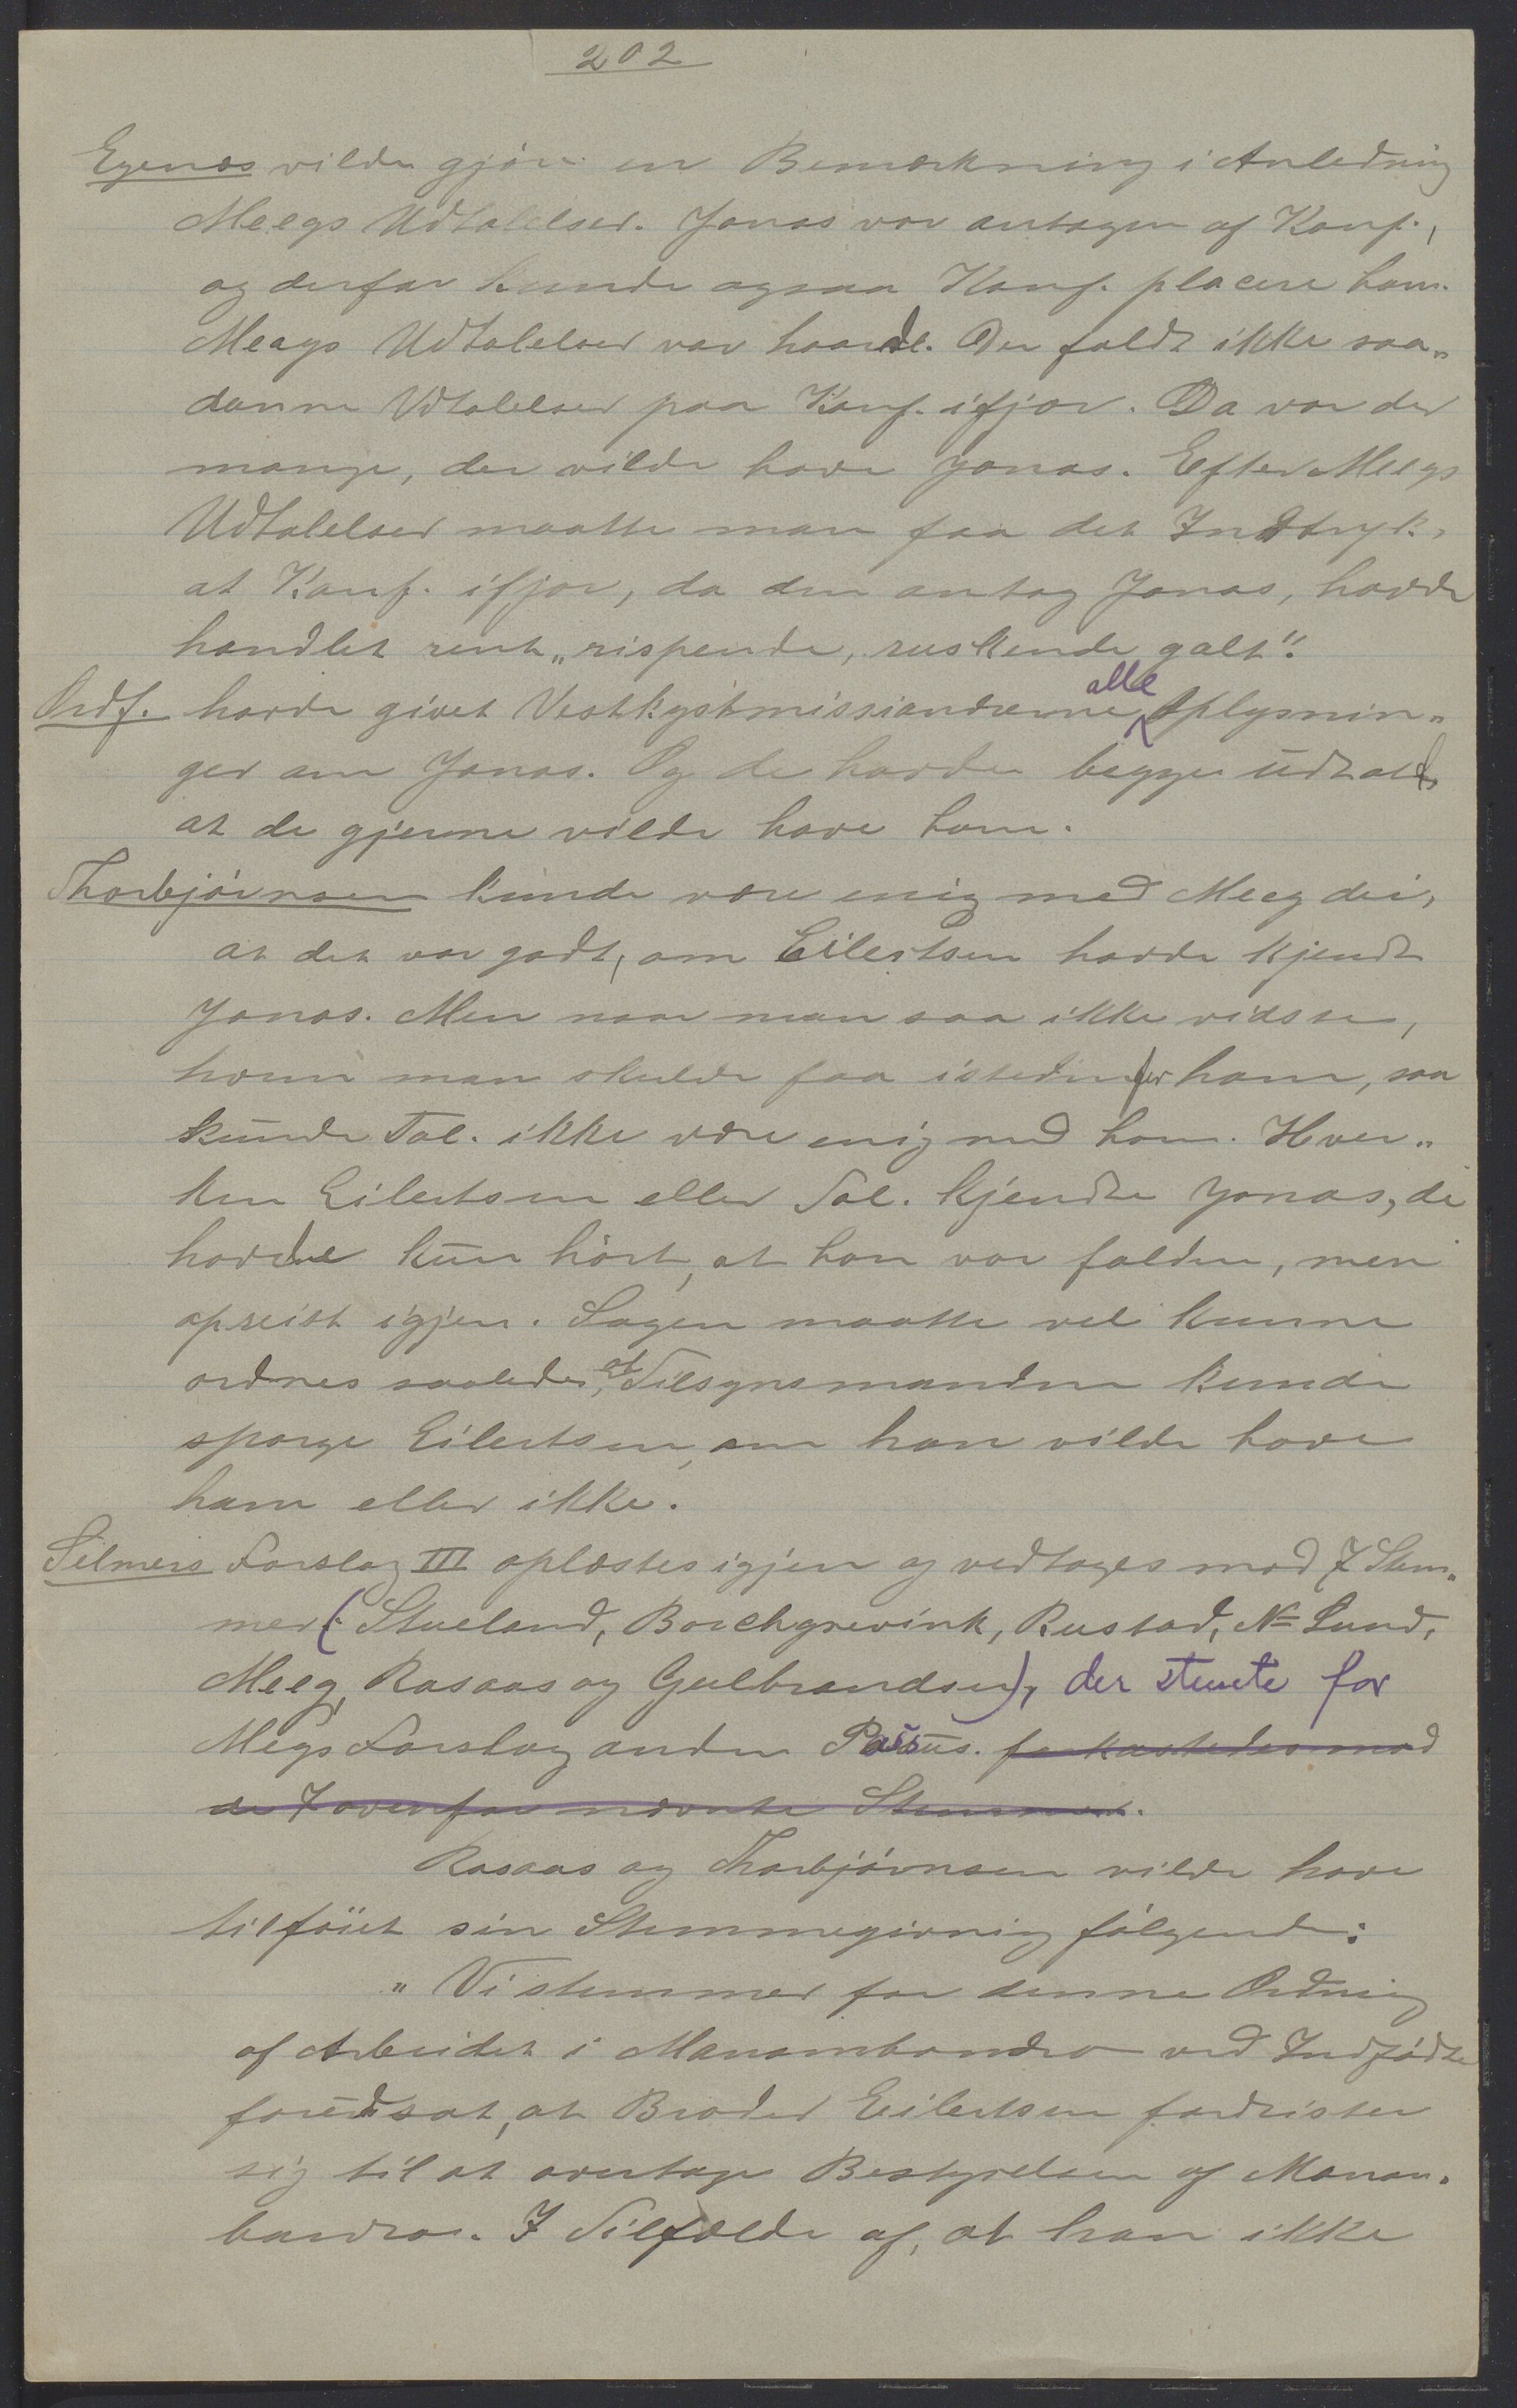 202
Egenæs vilde gjøre en Bemærkning i Anledning
Meegs Udtalelser. Jonas var antagen af Konf.,
og derfor kunde ogsaa Konf. placere ham.
Meegs Udtalelser var haarde. Der faldt ikke saa„
danne Udtalelser paa Konf. ifjor. Da var der
mange, der vilde have Jonas. Efter Meegs
Udtalelser maatte man faa det Indtryk,
at Konf. ifjor, da den antog Jonas, havde
handlet rent „rispende, ruskende galt“.
Ordf. havde givet Vestkystmissionærerne alle Oplysnin„
ger om Jonas. Og de havde begge udtalt,
at de gjerne vilde have ham.
Thorbjørnsen kunde være enig med Meeg deri,
at det var godt, om Eilertsen havde kjendt
Jonas. Men naar man saa ikke vidste,
hvem man skulde faa istedenfor ham, saa
kunde Tal. ikke være enig med ham. Hver„
ken Eilertsen eller Tal. kjendte Jonas, de
havde kun hørt, at han var falden, men
opreist igjen. Sagen maatte vel kunne
ordnes saaledes, at Tilsynsmanden kunde
spørge Eilertsen, om han vilde have
ham eller ikke.
Selmers Forslag III oplæstes igjen og vedtoges mod 7 Stem„
mer (: Stueland, Borchgrevink, Rustad, N= Lund,
Meeg, Rasaas og Gulbrandsen), der stemte for
Megs Forslag anden Passus. forkastedes mod
de 7 ovenfor nævnte Stemmer.
Rasaas og Thorbjørnsen vilde have
tilføiet sin Stemmegivning følgende:
„Vi stemmer for denne Ordning
af Arbeidet i Manambondro ved Indfødte
forudsat, at Broder Eilertsen fordrister
sig til at overtage Bestyrelsen af Manam„
bondro. I Tilfælde af, at han ikke